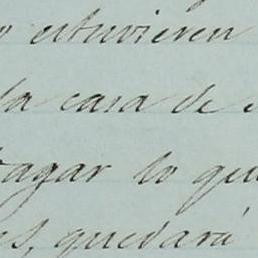 estuvieren
la casa de
pagar lo que
quedará